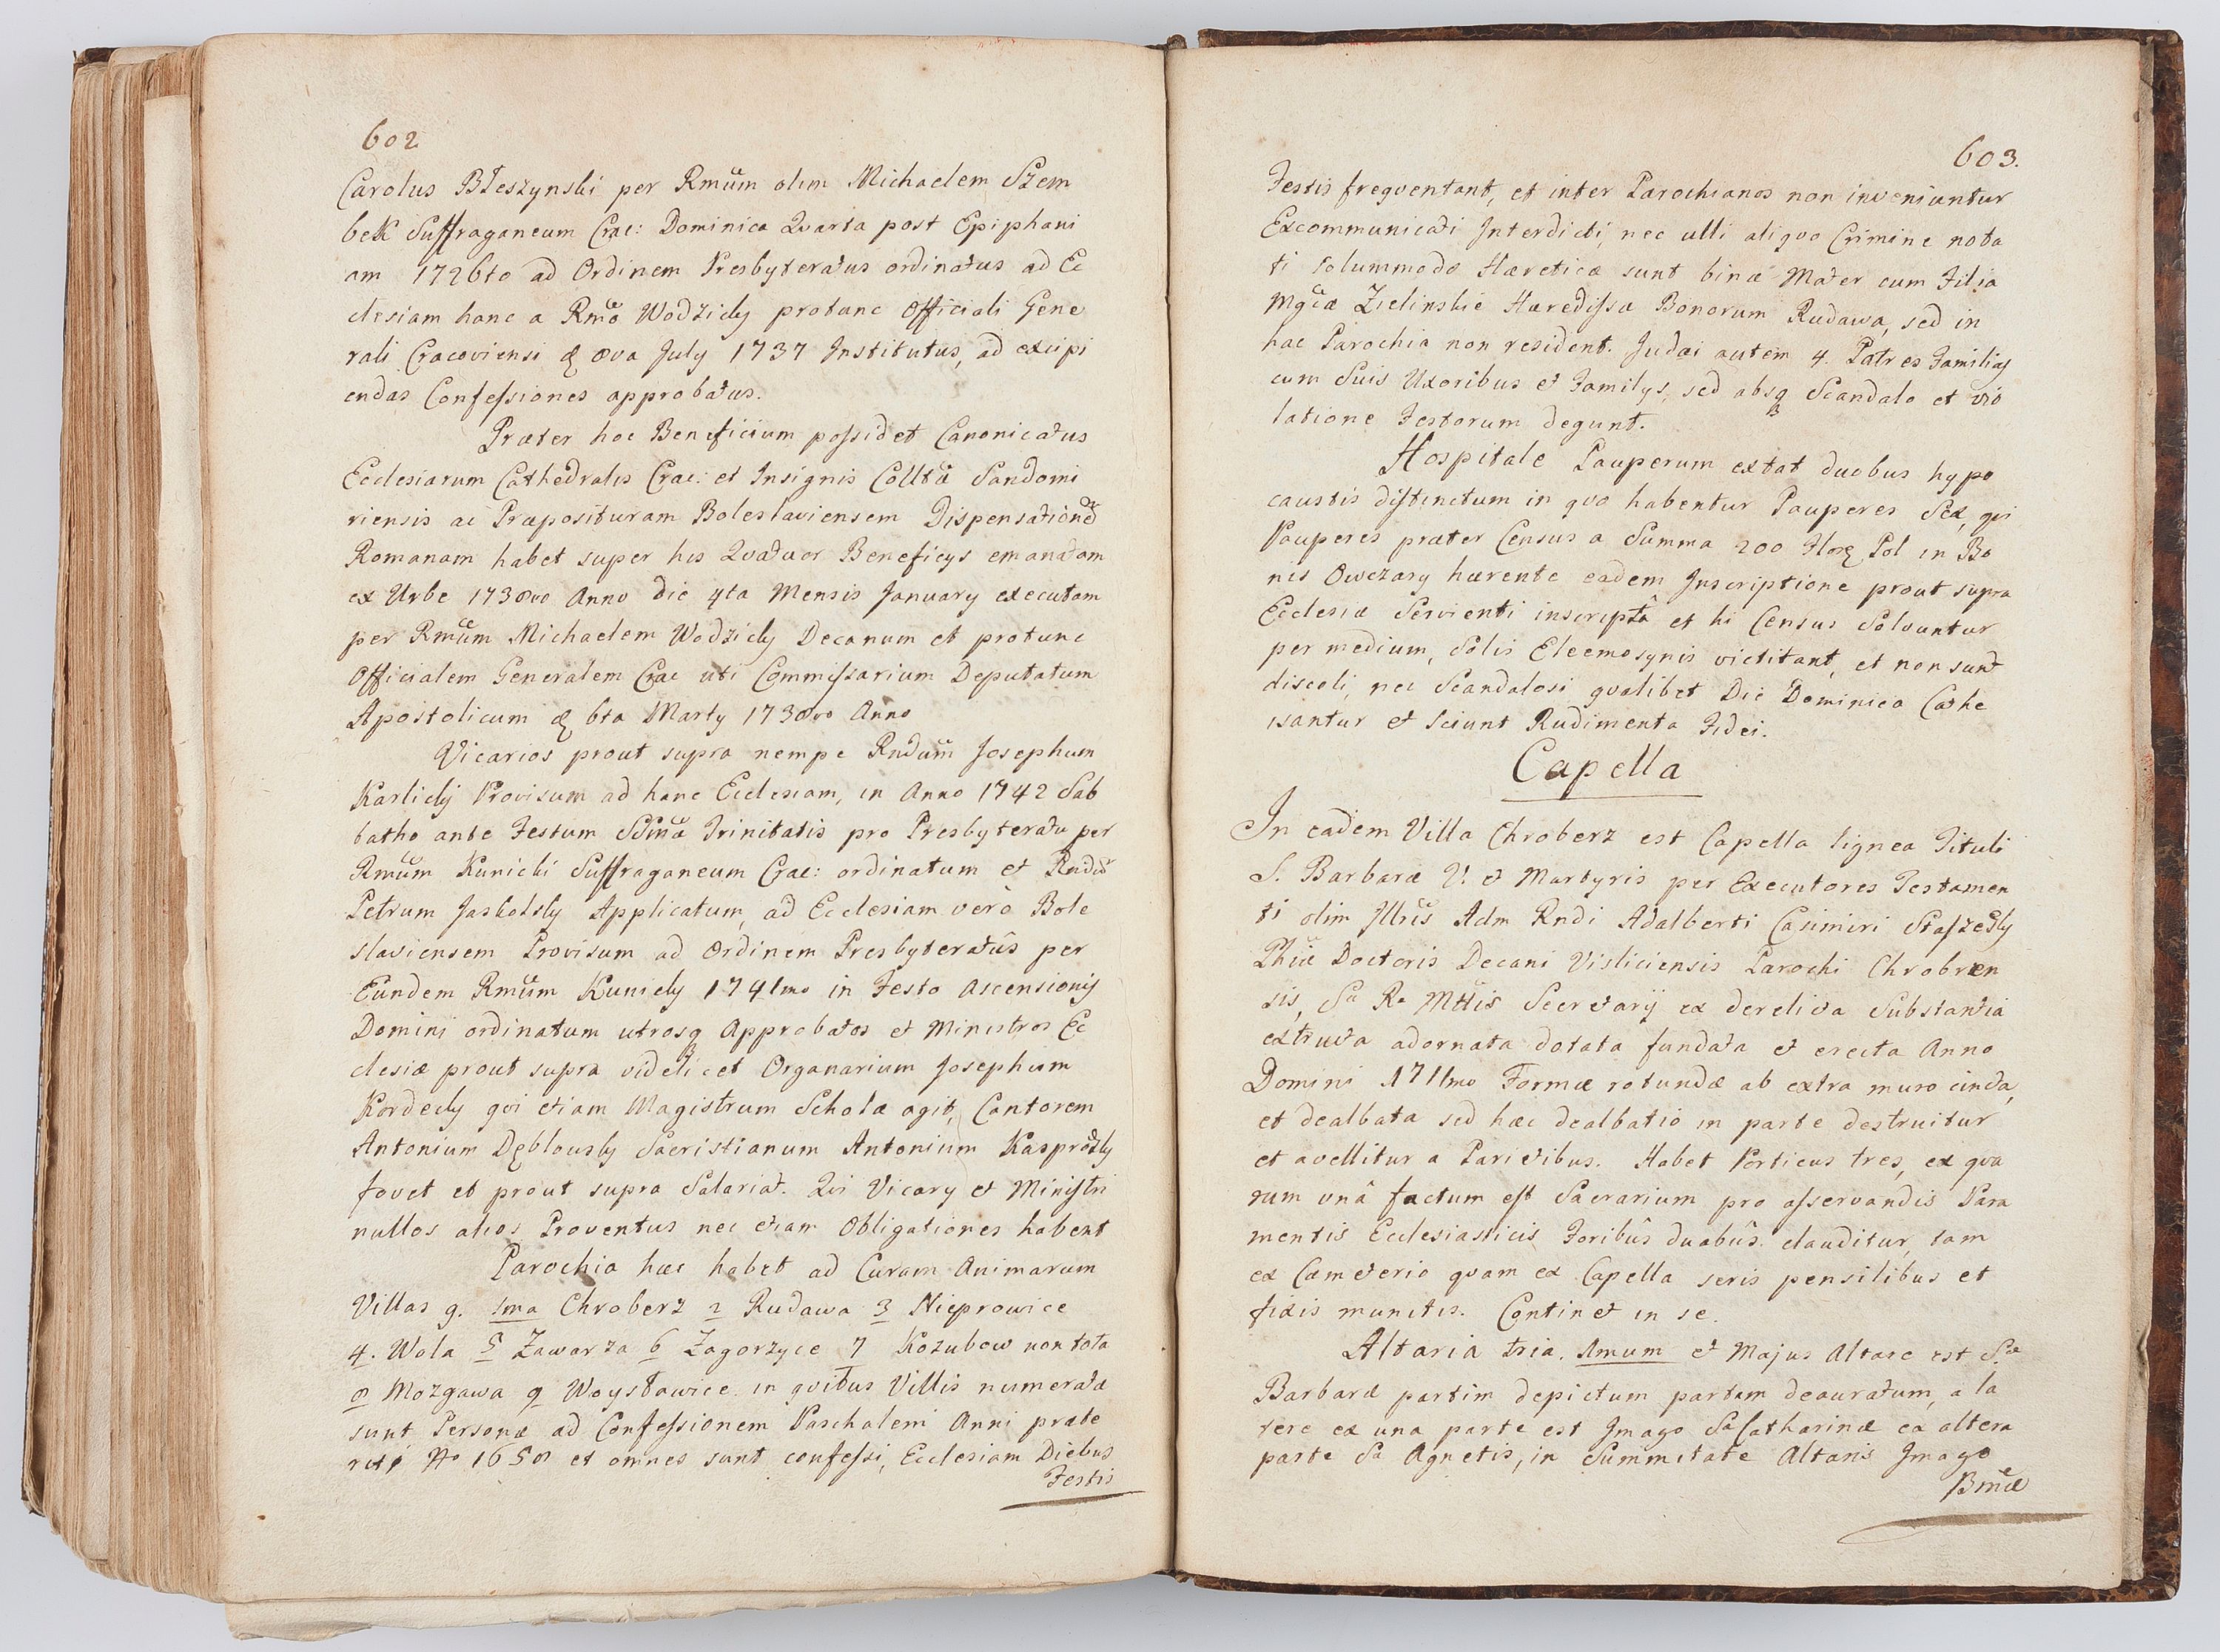 602
Carolus Błeszynski per Rmum olim Michaelem Szem
bek Suffraganeum Crac: Dominica Qvarta post Epiphani
am 1726to ad Ordinem Presbyteratus ordinatus ad Ec
clesiam hanc a Rmo Wodzicky protunc Officiali Gene
rali Cracoviensi d 8va July 1737 Institutus, ad excipi
endas Confessiones approbatus.
Præter hoc Beneficium possidet Canonicatus
Ecclesiarum Cathedralis Crac: et Insignis Collta Sandomi
riensis ac Præposituram Boleslaviensem Dispensationē
Romanam habet super his Qvatuor Beneficys emanatam
ex Urbe 1738vo Anno die 4ta Mensis January executam
per Rmum Michaelem Wodzicky Decanum et protunc
Officialem Generalem Crac uti Commissarium Deputatum
Apostolicum d 6ta Marty 1738vo Anno
Vicarios prout supra nempe Rndum Josephum
Karlicky Provisum ad hanc Ecclesiam, in Anno 1742 Sab
batho ante Festum SSma Trinitatis pro Presbyteratu per
Rmum Kunicki Suffraganeum Crac: ordinatum et Rndū
Petrum Jaskolsky Applicatum, ad Ecclesiam verò Bole
slaviensem Provisum ad Ordinem Presbyteratûs per
Eundem Rmum Kunicky 1741mo in Festo Ascensionis
Domini ordinatum utrosq Approbatos et Ministros Ec
clesiæ prout supra videlicet Organarium Josephum
Kordecky qvi etiam Magistrum Scholæ agit, Cantorem
Antonium Dębłowsky Sacristianum Antonium Kasprzsky
fovet et prout supra Salariat. Qvi Vicary et Ministri
nullos alios Proventus nec etiam Obligationes habent
Parochia hæc habet ad Curam Animarum
Villas 9. 1ma Chroberz 2 Rudawa 3 Nieprowice
4. Wola 5 Zawarza 6 Zagorzyce 7 Kozubow non tota
8 Mozgawa 9 Woysławice in qvibus Villis numeratæ
sunt Personæ ad Confessionem Paschalem Anni præte
riti No 1658 et omnes sunt confessi, Ecclesiam Diebus
Festis
603.
Festis freqventant, et inter Parochianos non inveniuntur
Excommunicati Interdicti, nec ulli aliqvo Crimine nota
ti solummodo Hæreticæ sunt binæ Mater cum Filia
Mgcæ Zielinskie Hæredissa Bonorum Rudawa, sed in
hac Parochia non resident. Judæi autem 4. Patres Familias
cum Suis Uxoribus et Familys, sed absq Scandalo et vio
latione Festorum degunt.
Hospitale Pauperum extat duobus hypo
caustis distinctum in qvo habentur Pauperes Sex, qvi
Pauperes præter Census a Summa 200 Flor Pol in Bo
nis Owczary hærente eadem Inscriptione prout supra
Ecclesiæ Servienti inscriptâ et hi Census Solvuntur
per medium, Solis Eleemosynis victitant, et non sunt
discoli, nec Scandalosi qvalibet Die Dominica Cathe
isantur et sciunt Rudimenta Fidei.
Capella
In eadem Villa Chroberz est Capella lignea Tituli
S. Barbaræ V. et Martyris per Executores Testamen
ti olim Illris Adm Rndi Adalberti Casimiri Staszesky
Phiæ Doctoris Decani Visliciensis Parochi Chrobren
sis, Sæ Ræ Mttis Secretarij ex derelicta Substantia
extructa adornata dotata fundata et erecta Anno
Domini 1711mo Formæ rotundæ ab extra muro cincta,
et dealbata sed hæc dealbatio in parte destruitur
et avellitur a Parietibus. Habet Porticus tres, ex qva
rum unâ factum est Sacrarium pro asservandis Para
mentis Ecclesiasticis Foribûs duabûs clauditur, tam
ex Cæmeterio qvam ex Capella seris pensilibus et
fixis munitis. Continet in se.
Altaria tria. 1mum et Majus Altare est Sæ
Barbaræ partim depictum partem deauratum, a la
tere ex una parte est Imago Sæ Catharinæ ex altera
parte Sæ Agnetis, in Summitate Altaris Imago
Bmæ